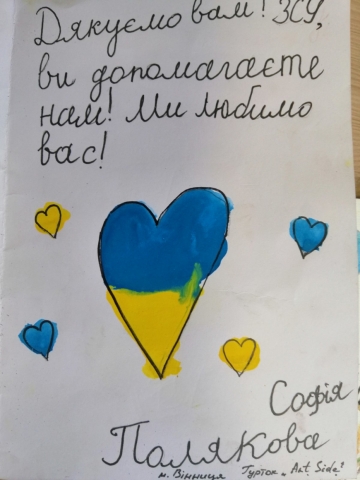 Дякуємо вам! ЗСУ,
ви допомагаєте
нам! Ми любимо
вас!
Софія
Полякова
м. Вінниця Гурток „Art Side"